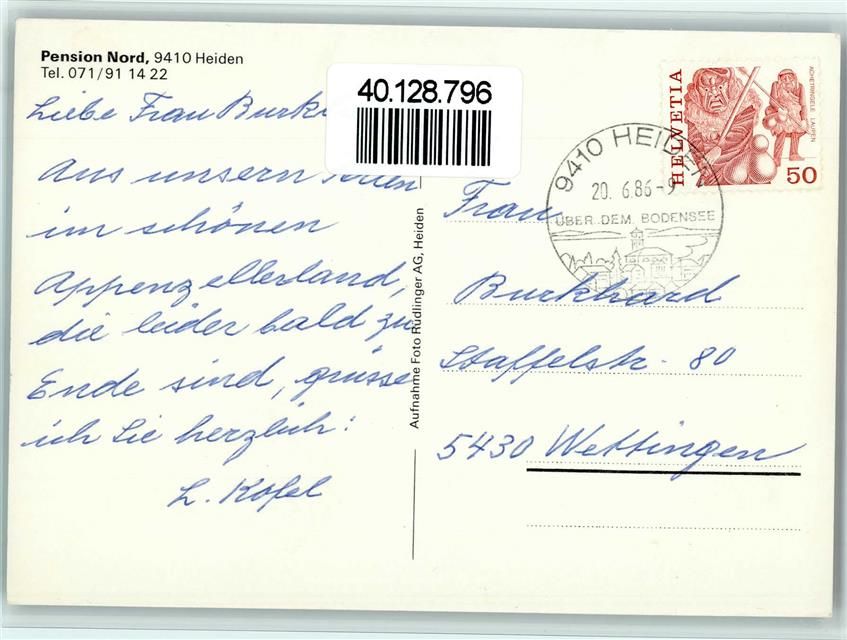 Pension Nord, 9410 Heiden
Tel. 071/91 14 22
Liebe Frau Burk
Aus unsern
im schönen
Appenzellerland,
die leider bald zu
Ende sind, grüsse
ich Sie herzlich:
L. Kofel
40.128.796
Aufnahme Foto Rüdlinger AG, Heiden
HELVETIA
ACHETRINGELE LAUPEN
50
9410 HEIDEN
20. 6.86-9
ÜBER DEM BODENSEE
Frau
Burkhard
Staffelstr. 80
5430 Wettingen